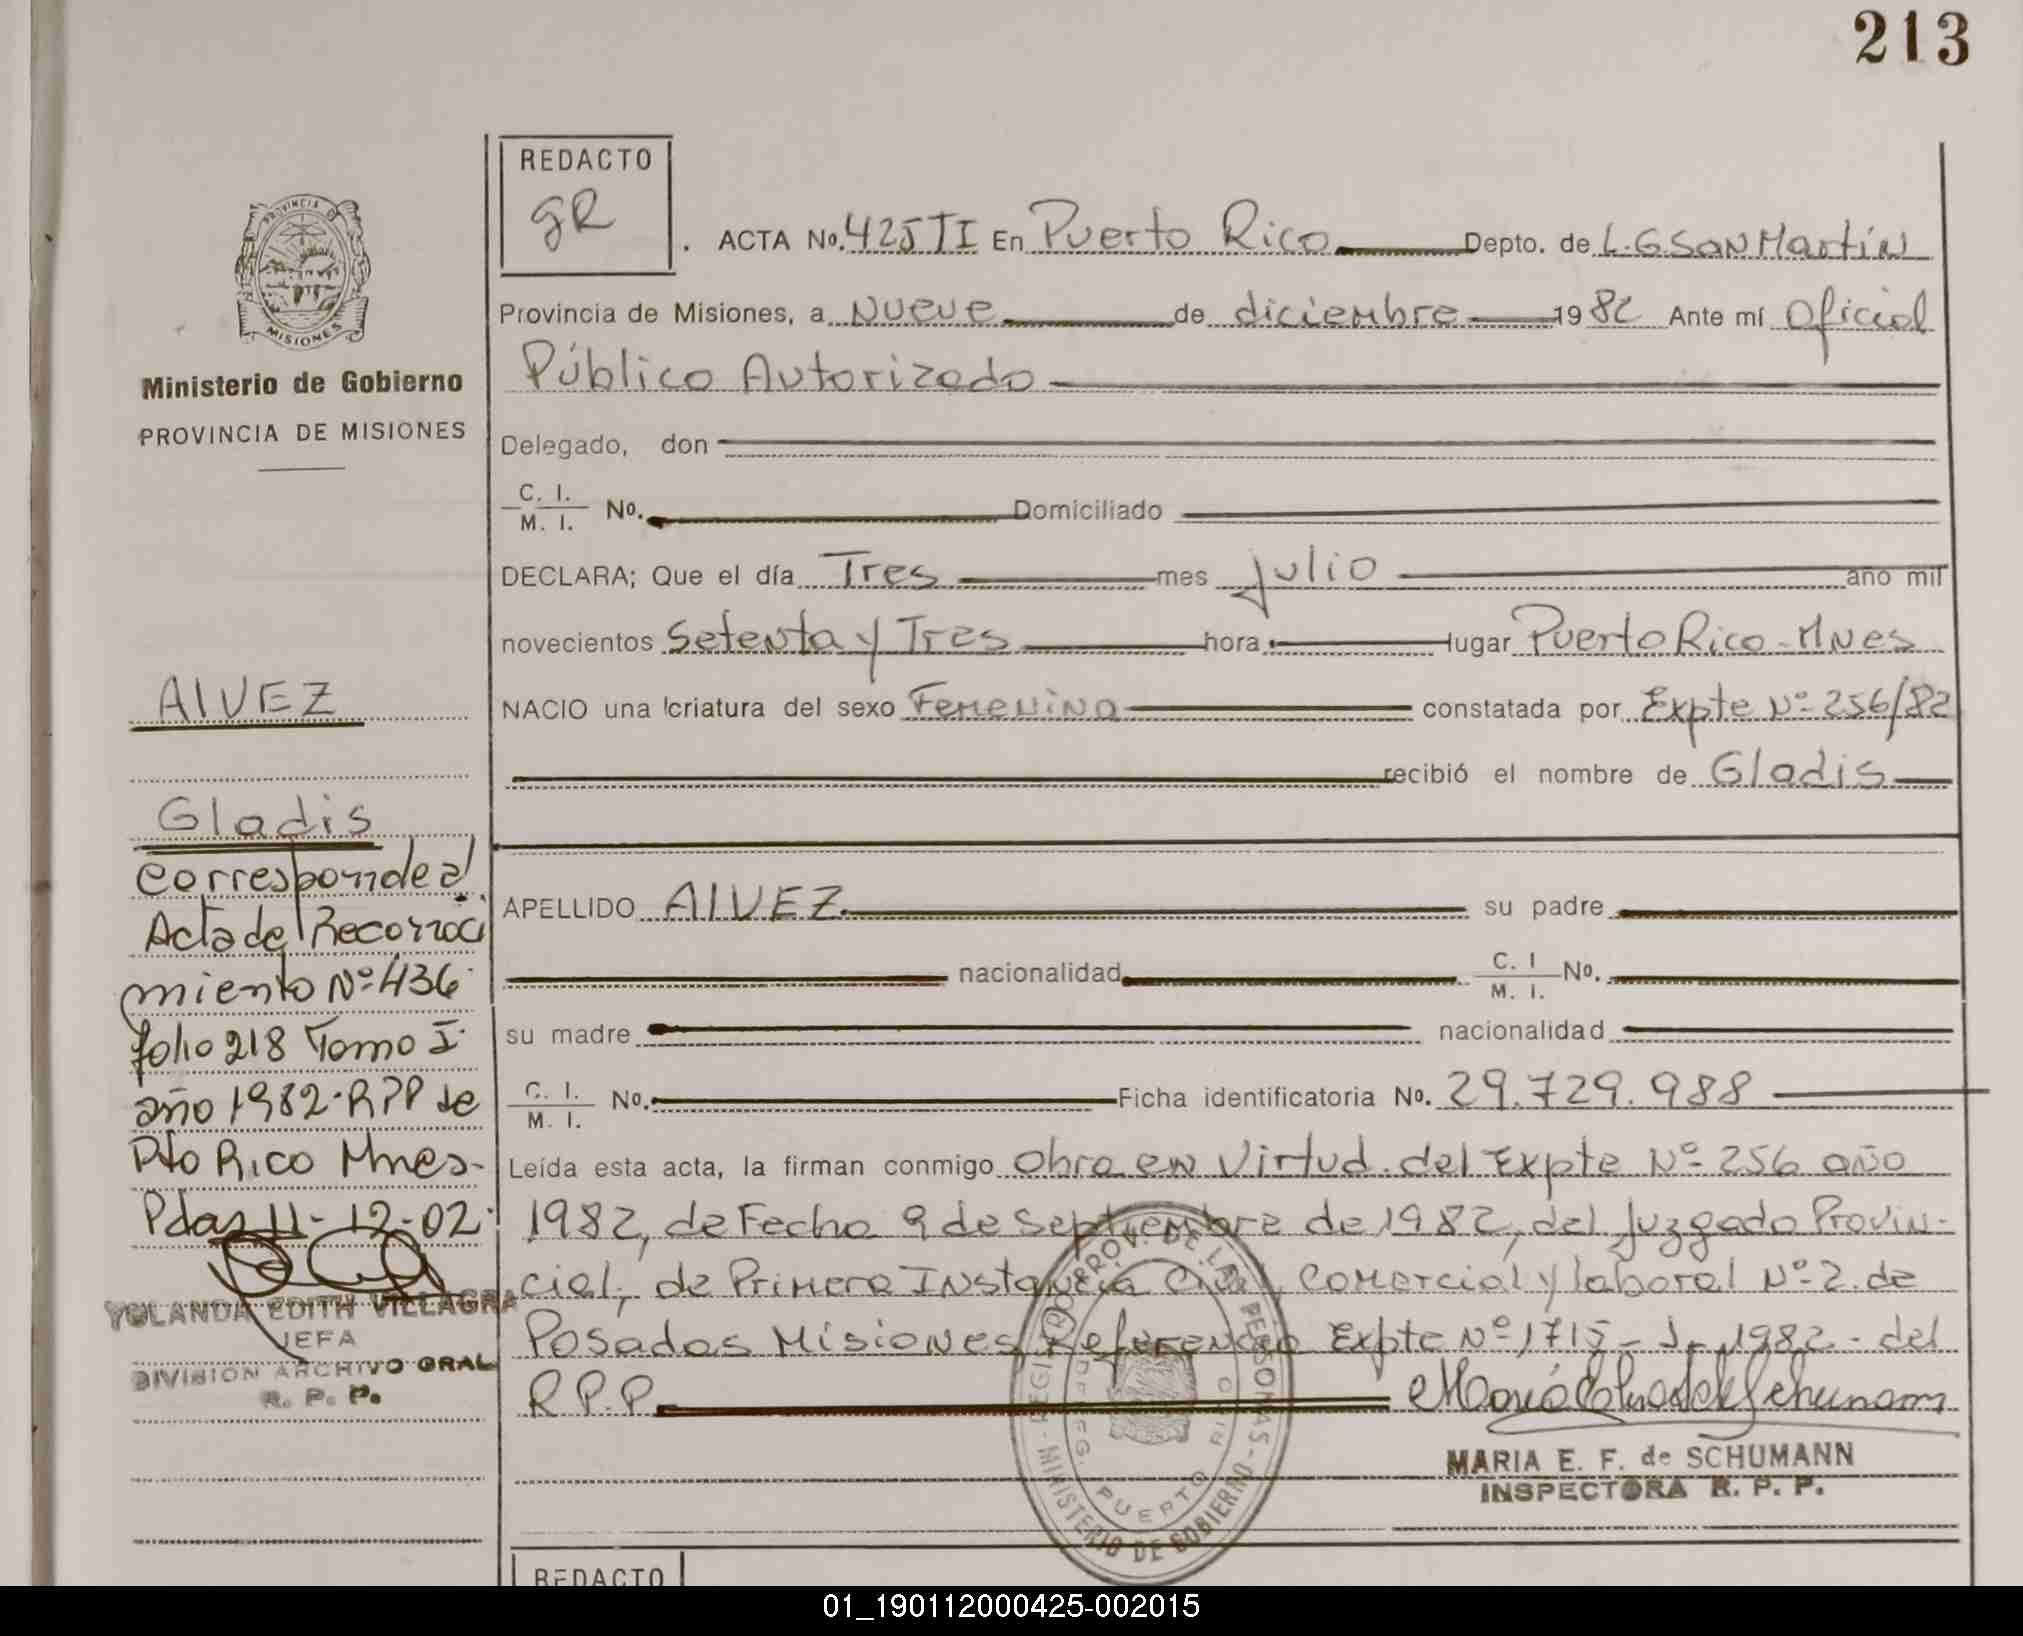 213
REDACTO
gR
. ACTA No. 425 TI En Puerto Rico Depto. de L.G San Martín
PROVINCIA D
MISIONES
Provincia de Misiones, a Nueve de diciembre 1982 Ante mí Oficial
Público Autorizado
Ministerio de Gobierno
PROVINCIA DE MISIONES
Delegado, don
C. I.
M. I. No. Domiciliado
DECLARA; Que el día Tres mes julio año mil
novecientos Setenta y Tres hora lugar Puerto Rico - Mnes
NACIO una criatura del sexo Femenino constatada por Expte Nº 256/82
recibió el nombre de Gladis
APELLIDO AlVEZ su padre
nacionalidad C. I
M. I. No.
su madre nacionalidad
C. I.
M. I. No. Ficha identificatoria No. 29.729.988
Leída esta acta, la firman conmigo Obra en Virtud. del Expte Nº 256 año
1982, de Fecha 9 de Septiembre de 1982, del Juzgado Provin-
cial, de Primera Instancia Civil, Comercial y laboral Nº 2. de
Posadas Misiones Referencia Expte Nº 1715 - J - 1982 - del
R.P.P.
MARIA E. F. de SCHUMANN
INSPECTORA R. P. P.
AlVEZ
Gladis
Corresponde al
Acta de Reconoci
miento Nº 436
folio 218 Tomo I
año 1982 - RPP de
Pto Rico Mnes-
Pdas 11-12-02
YOLANDA EDITH VILLAGRA
JEFA
DIVISION ARCHIVO GRAL
R. P. P.
PROV. DE LAS PERSONAS
MINISTERIO DE GOBIERNO
PUERTO RICO
REDACTO
01_190112000425-002015